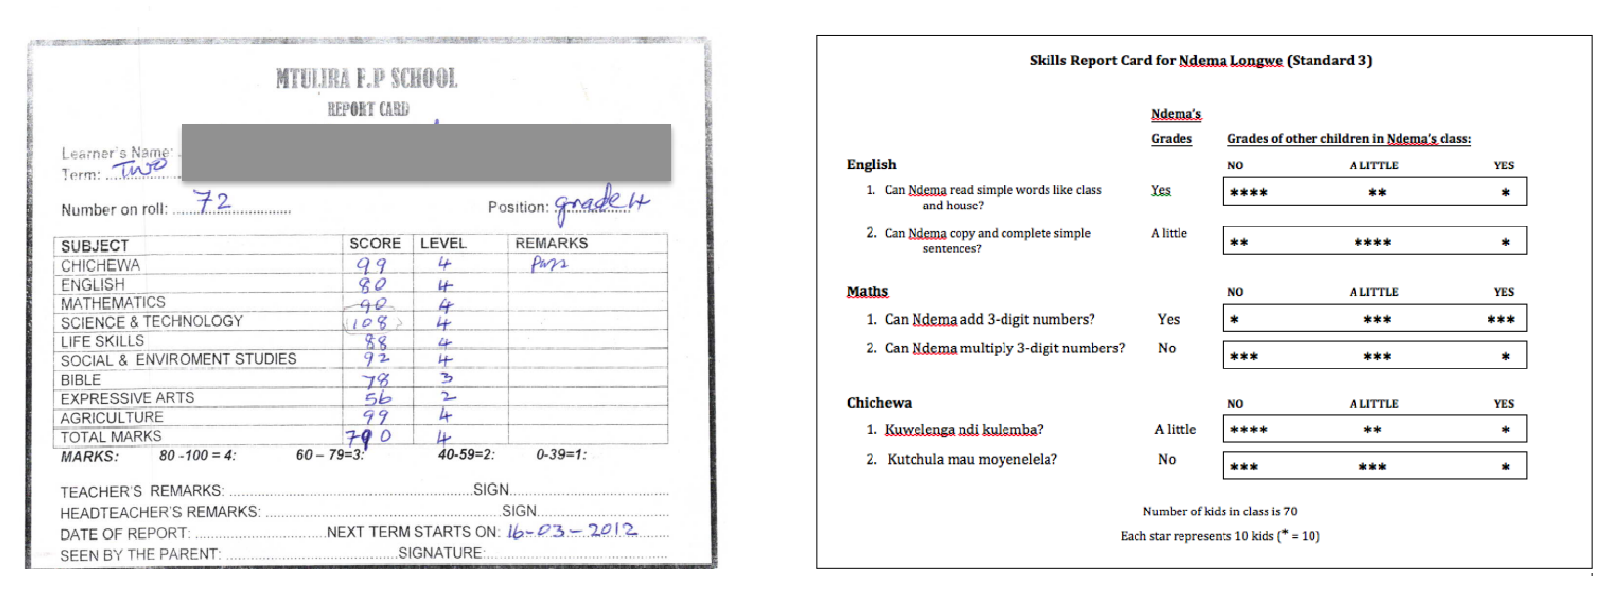 MTULIRA F.P SCHOOL
REPORT CARD
Learner's Name:
Term: Two
Number on roll: 72 Position: grade 4
SUBJECT SCORE LEVEL REMARKS
CHICHEWA 99 4 Pass
ENGLISH 80 4
MATHEMATICS 90 4
SCIENCE & TECHNOLOGY 108 4
LIFE SKILLS 88 4
SOCIAL & ENVIROMENT STUDIES 92 4
BIBLE 78 3
EXPRESSIVE ARTS 56 2
AGRICULTURE 99 4
TOTAL MARKS 790 4
MARKS: 80-100 = 4: 60 – 79=3: 40-59=2: 0-39=1:
TEACHER'S REMARKS: SIGN
HEADTEACHER'S REMARKS: SIGN
DATE OF REPORT: NEXT TERM STARTS ON: 16-03-2012
SEEN BY THE PARENT: SIGNATURE:
Skills Report Card for Ndema Longwe (Standard 3)
Ndema's
Grades Grades of other children in Ndema's class:
English NO A LITTLE YES
1. Can Ndema read simple words like class Yes **** ** *
and house?
2. Can Ndema copy and complete simple A little ** **** *
sentences?
Maths NO A LITTLE YES
1. Can Ndema add 3-digit numbers? Yes * *** ***
2. Can Ndema multiply 3-digit numbers? No *** *** *
Chichewa NO A LITTLE YES
1. Kuwelenga ndi kulemba? A little **** ** *
2. Kutchula mau moyenelela? No *** *** *
Number of kids in class is 70
Each star represents 10 kids (* = 10)